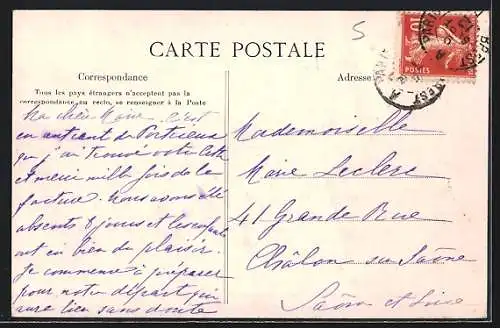 5
CARTE POSTALE
Correspondance
Tous les pays étrangers n'acceptent pas la
correspondance au recto, se renseigner à la Poste
Adresse
10
POSTES
PARIS
Ma chère Marie, c'est
en rentrant de
que j'ai trouvé votre lettre
et merci mille fois de la
facture. Nous avons été
absents 8 jours et les enfants
ont eu bien du plaisir.
Je commence à préparer
pour notre départ qui
aura lieu sans doute
Mademoiselle
Marie Leclerc
41 Grande Rue
Châlon sur Saône
Saône et Loire